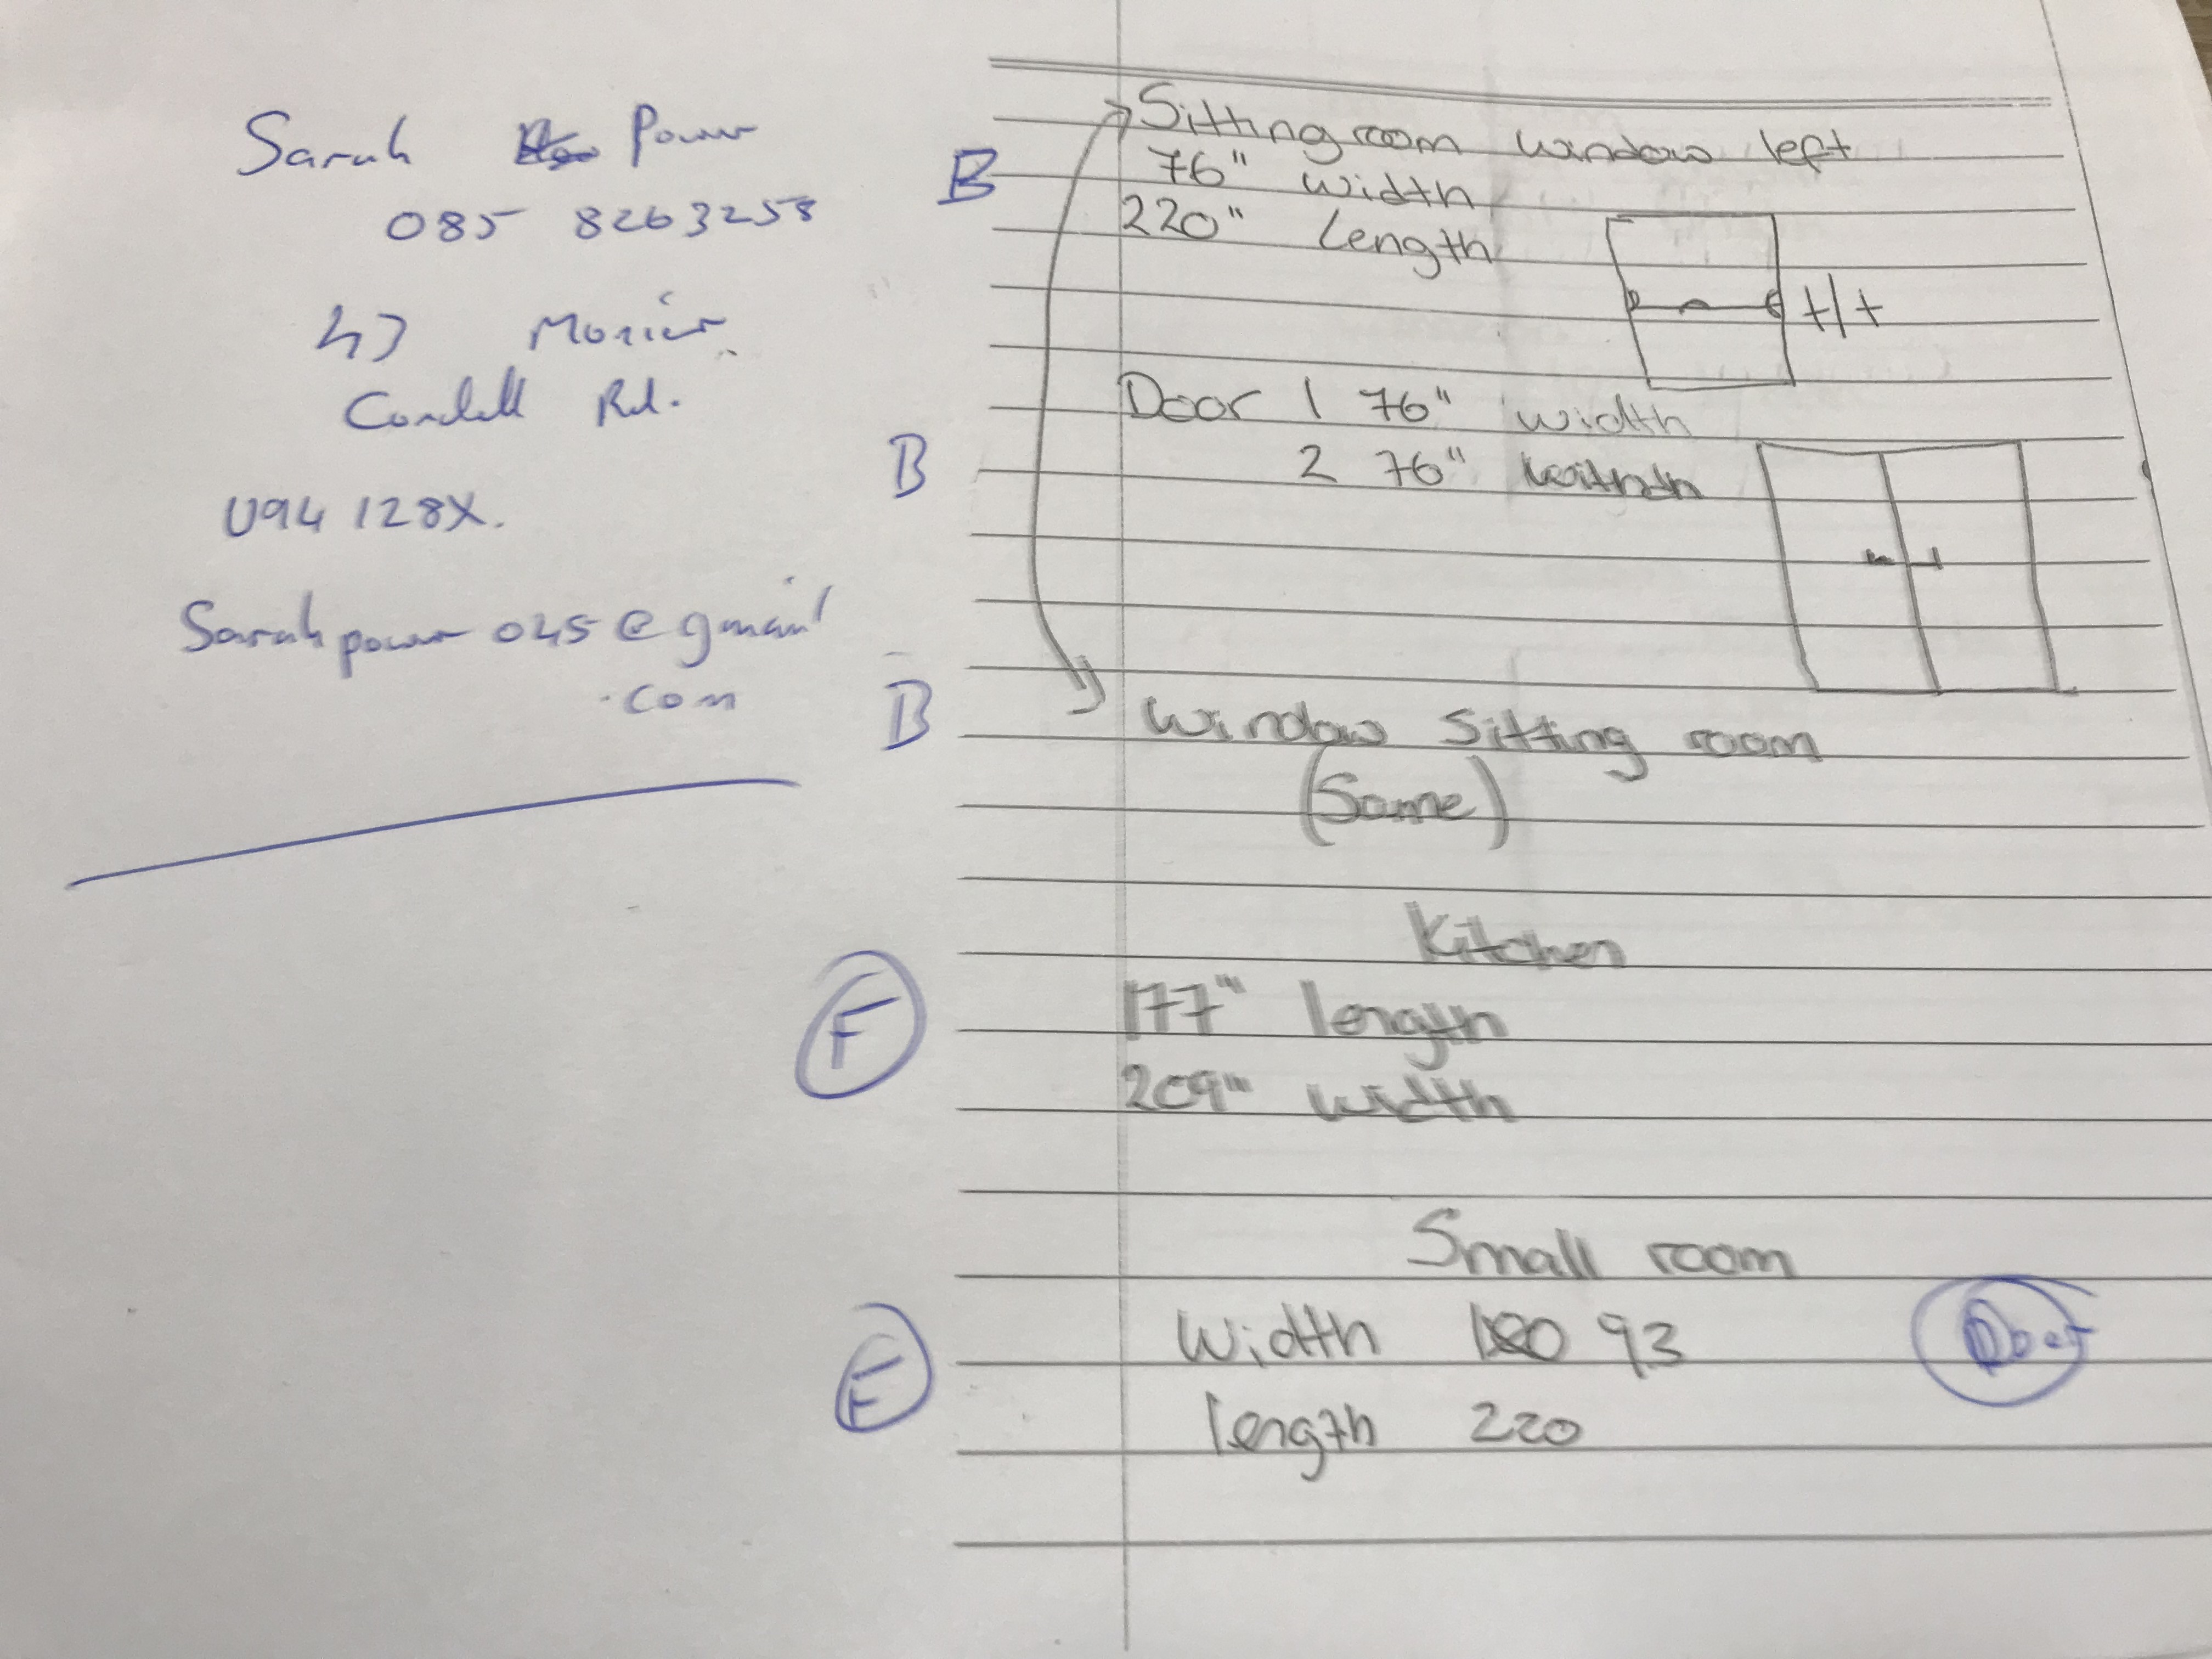 Sarah Power
085 8263258
47
Rd.
Sarahpower045@gmail
.com
Sittingroom window left
B 76" width
220" Length
t/t
Door 1 76" width
B 2 76"
B Window Sitting room
(Same)
Kitchen
F 177" length
209" width
Small room
Width 93
F length 220
Door